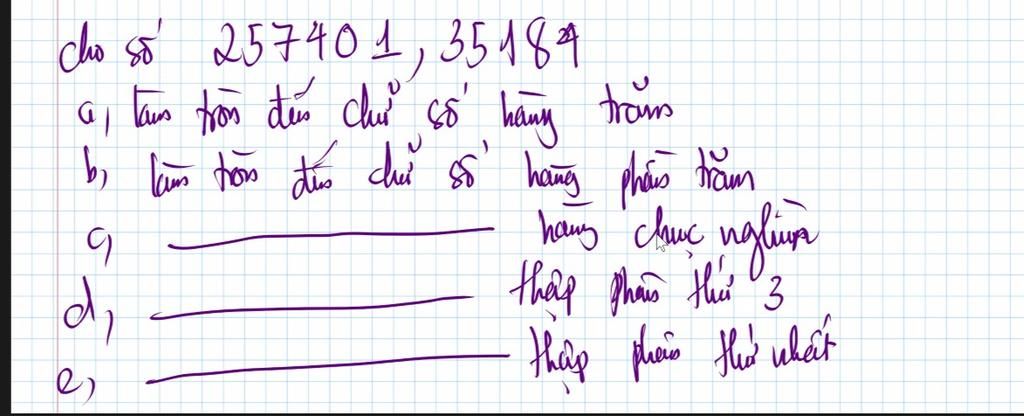 cho số 257401,35184
a, làm tròn đến chữ số hàng trăm
b, làm tròn đến chữ số hàng phần trăm
c, hàng chục nghìn
d, thập phân thứ 3
e, thập phân thứ nhất